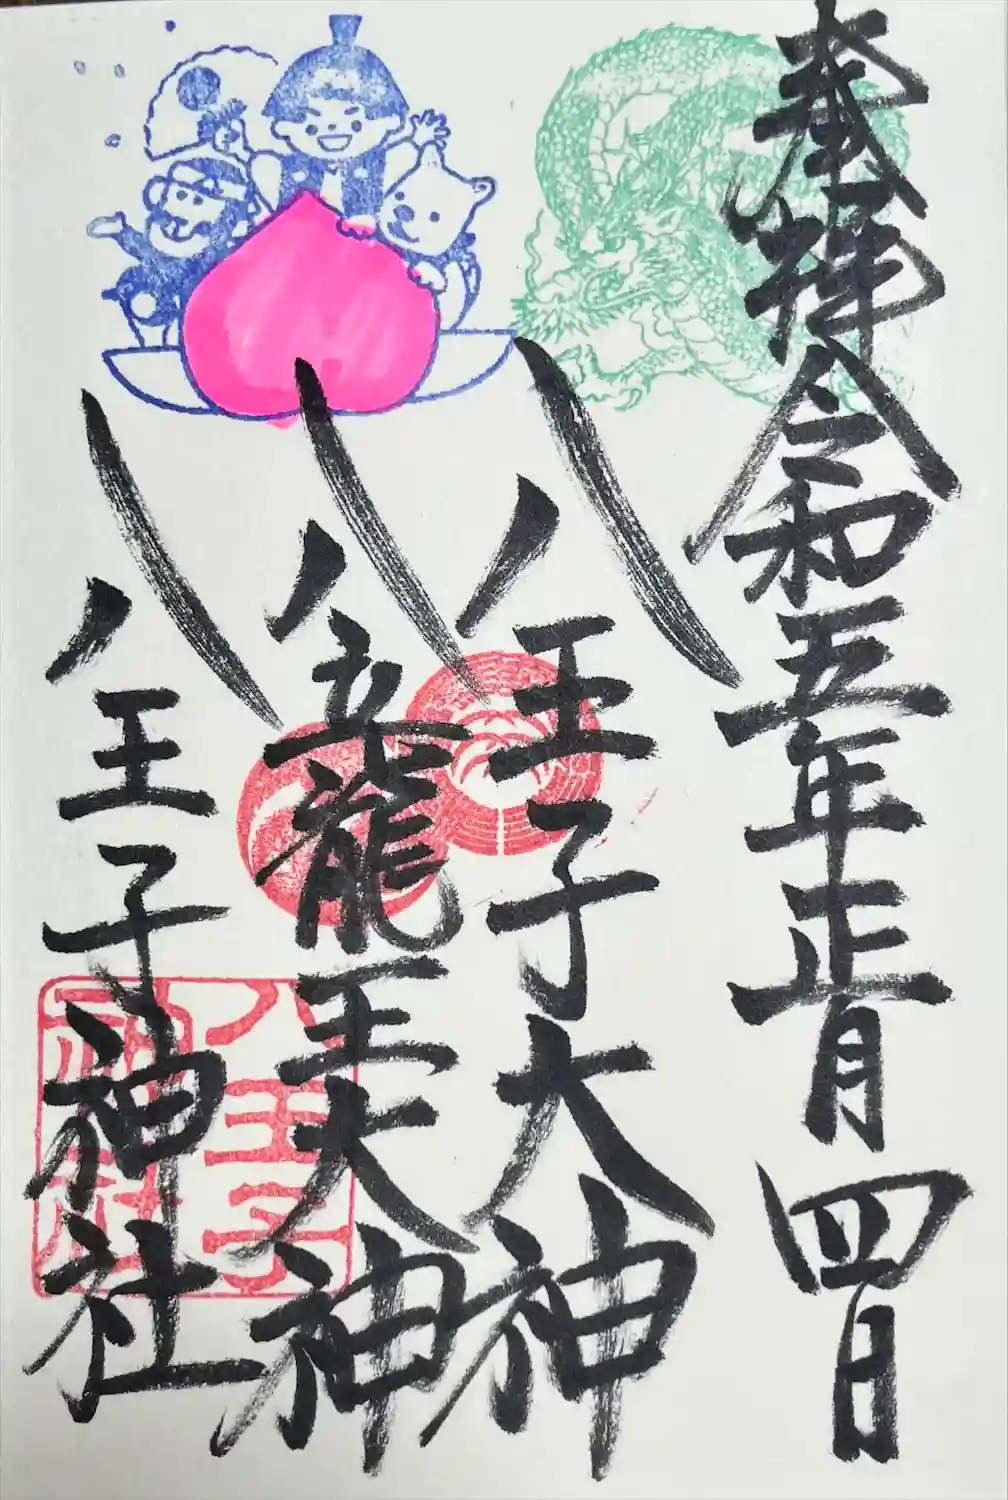 奉拝 令和五年正月四日
八王子大神
八龍王大神
八王子神社
八王子神社